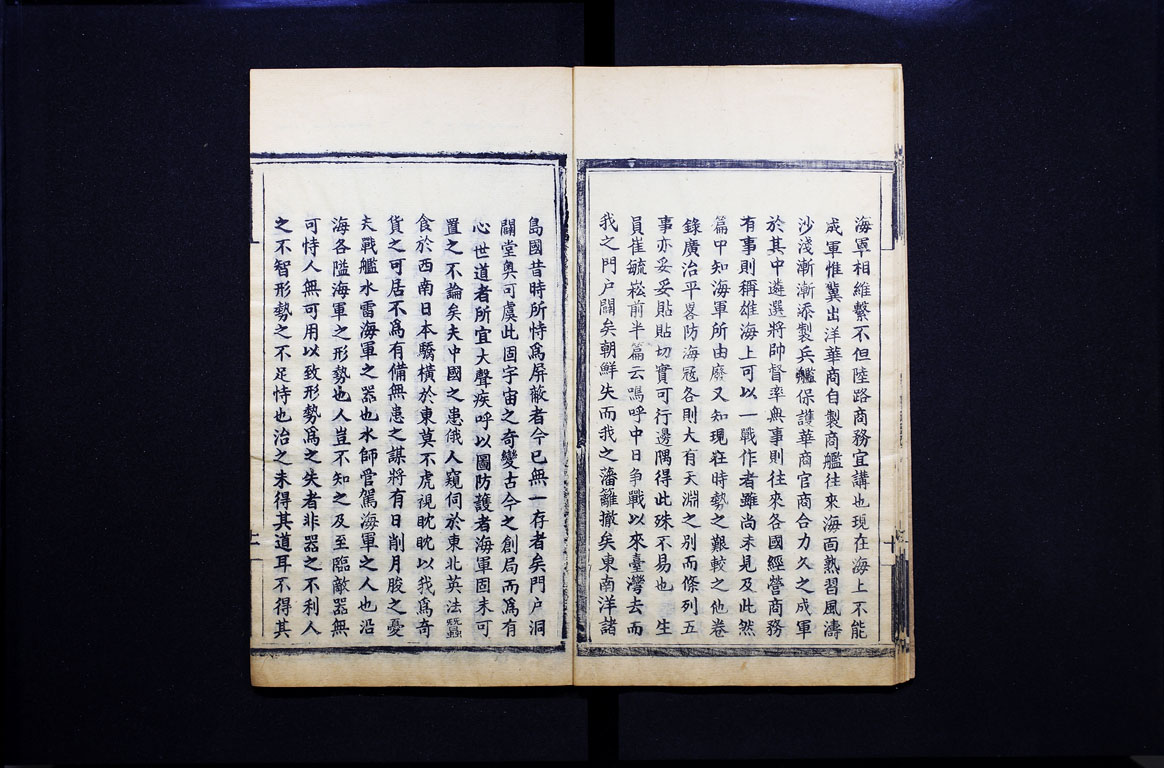 海軍相維繫不但陸路商務宜講也現在海上不能
成軍惟冀出洋華商自製商艦往來海面熟習風濤
沙淺漸漸添製兵艦保護華商官商合力久之成軍
於其中遴選將帥督率無事則往來各國經營商務
有事則稱雄海上可以一戰作者雖尚未見及此然
篇中知海軍所由廢又知現在時勢之艱較之他卷
錄廣治平畧防海冦各則大有天淵之別而條列五
事亦妥妥貼貼切實可行邊隅得此殊不易也 生
員崔毓崧前半篇云嗚呼中日争戰以來臺灣去而
我之門户闢矣朝鮮失而我之藩籬撤矣東南洋諸
島國昔時所恃爲屏蔽者今已無一存者矣門户洞
闢堂奥可虞此固宇宙之奇變古今之創局而爲有
心世道者所宜大聲疾呼以圖防護者海軍固未可
置之不論矣夫中國之患俄人窺伺於東北英法蠶
食於西南日本驕横於東莫不虎視眈眈以我爲奇
貨之可居不爲有備無患之謀將有日削月朘之憂
夫戰艦水雷海軍之器也水師管駕海軍之人也沿
海各隘海軍之形勢也人豈不知之及至臨敵器無
可恃人無可用以致形勢爲之失者非器之不利人
之不智形勢之不足恃也治之未得其道耳不得其